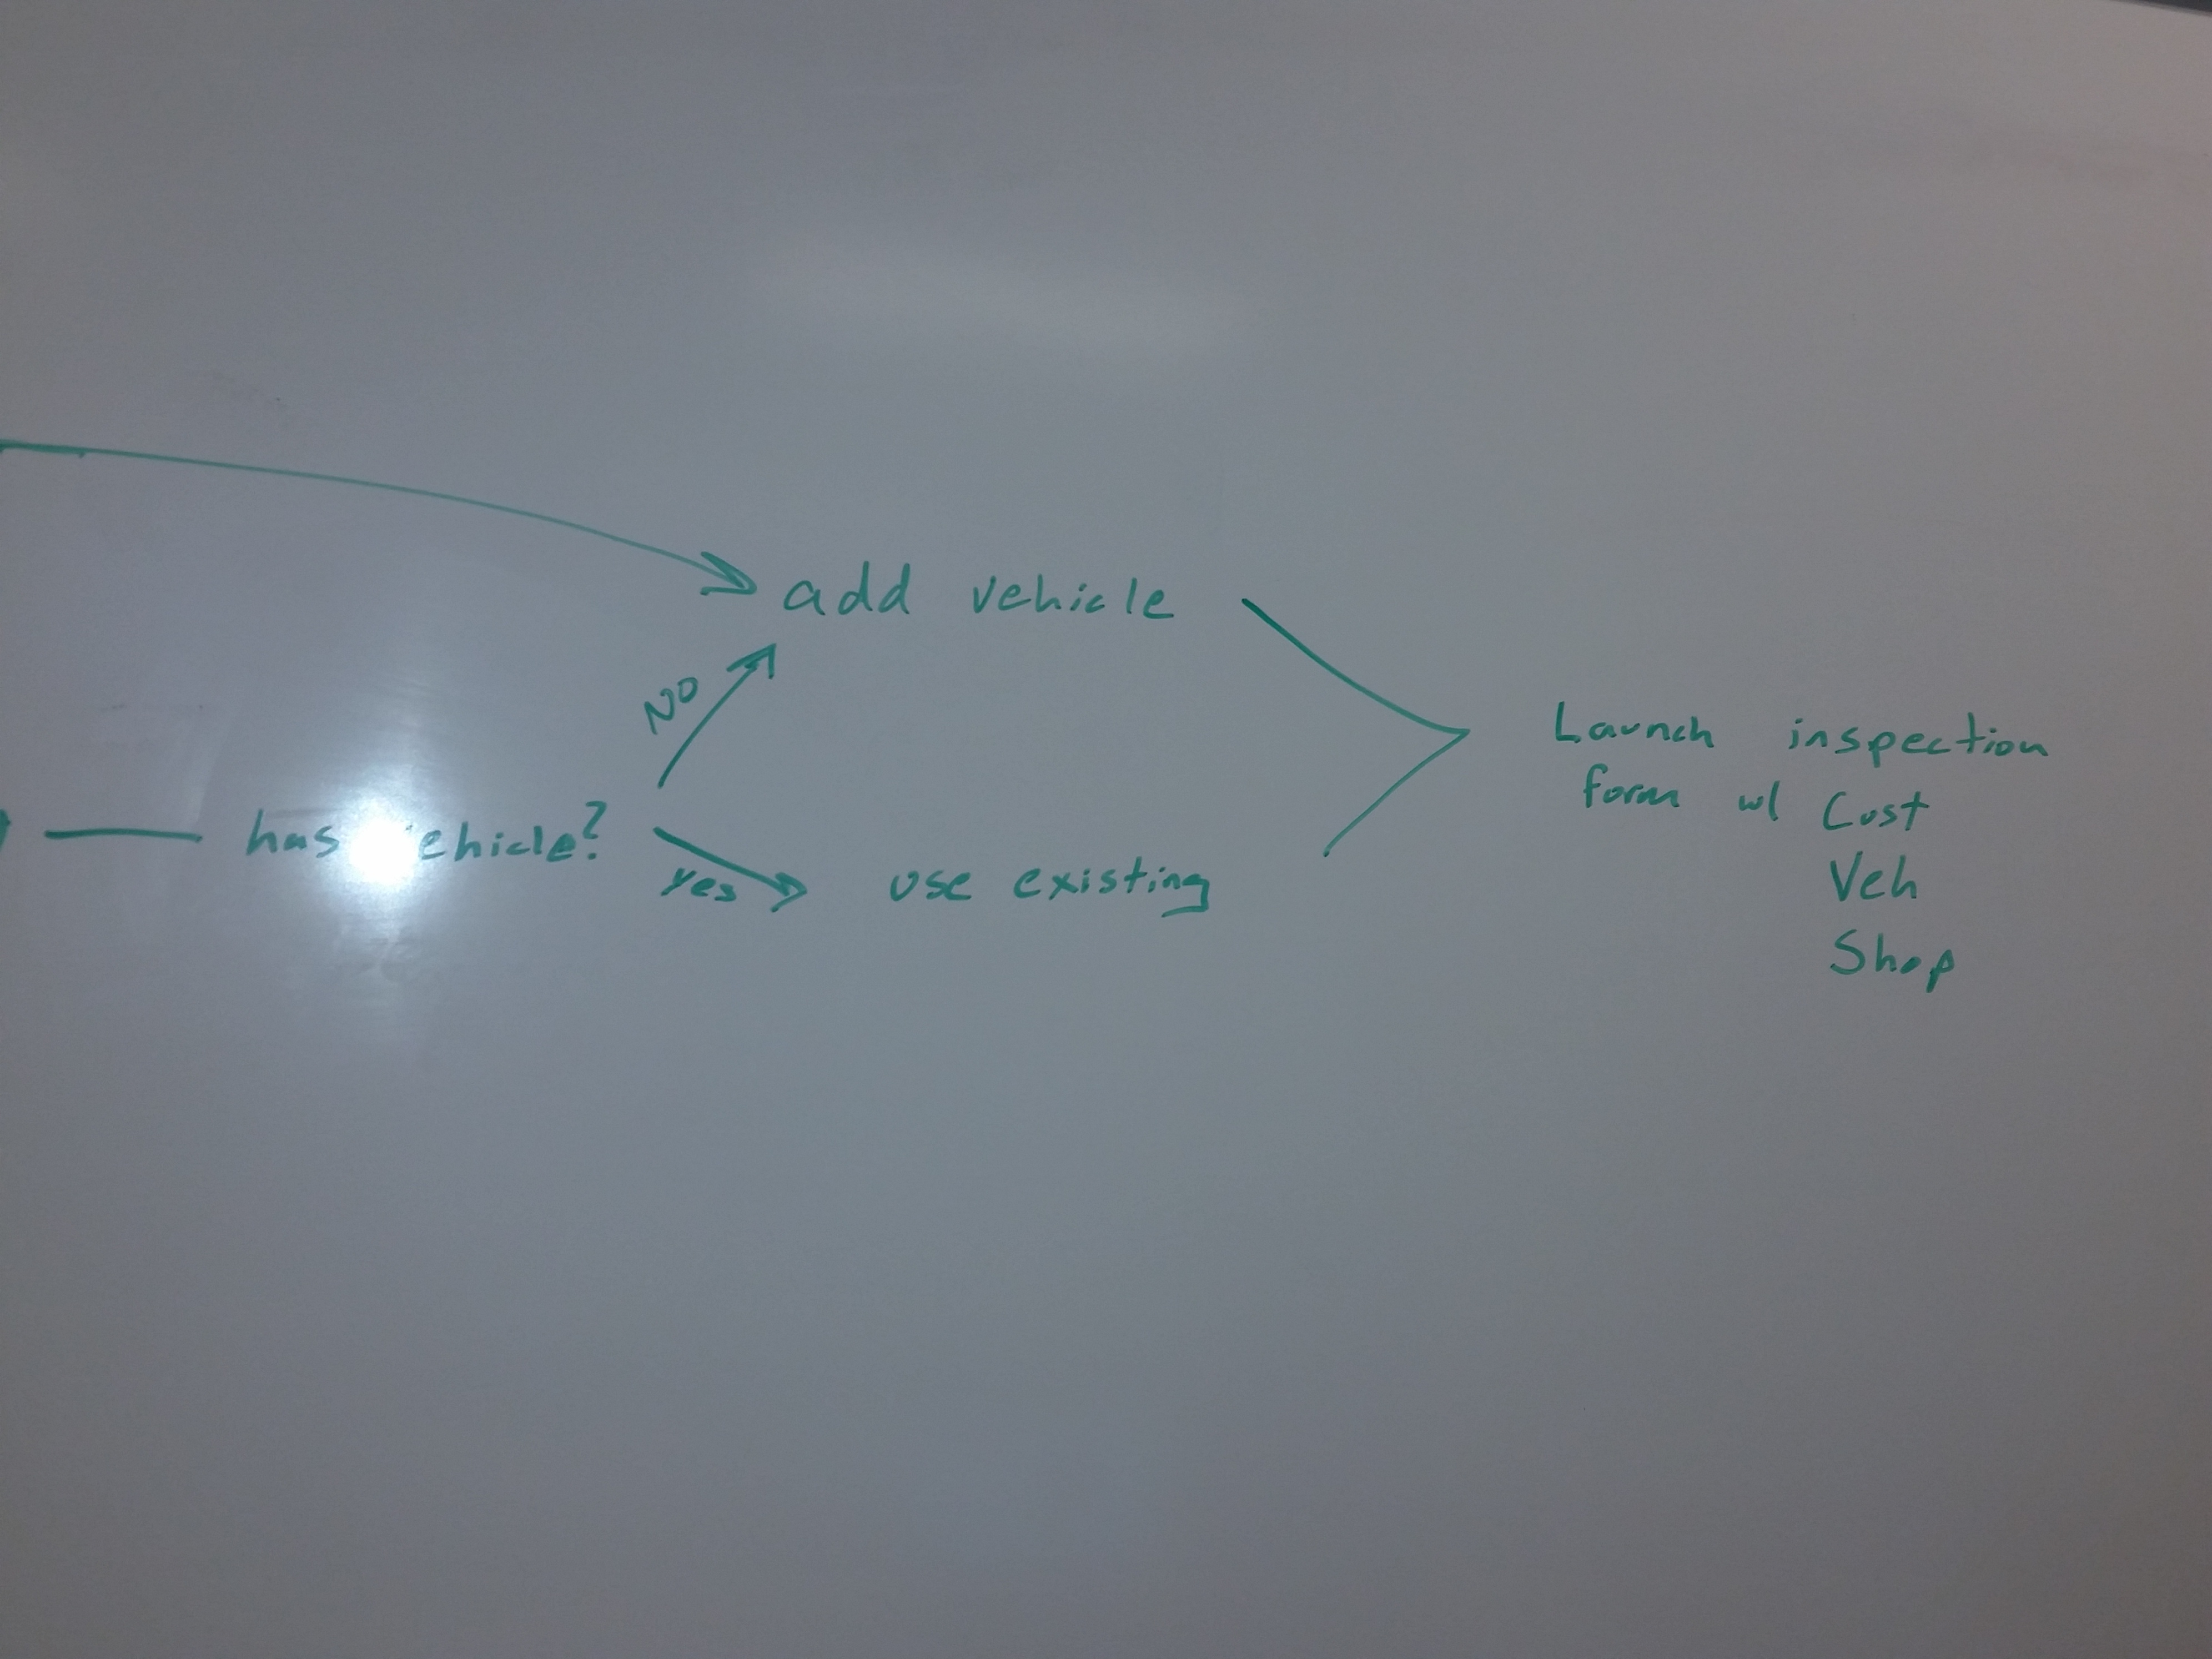 add vehicle
NO
has vehicle?
yes
use existing
Launch inspection
form w/ Cust
Veh
Shop